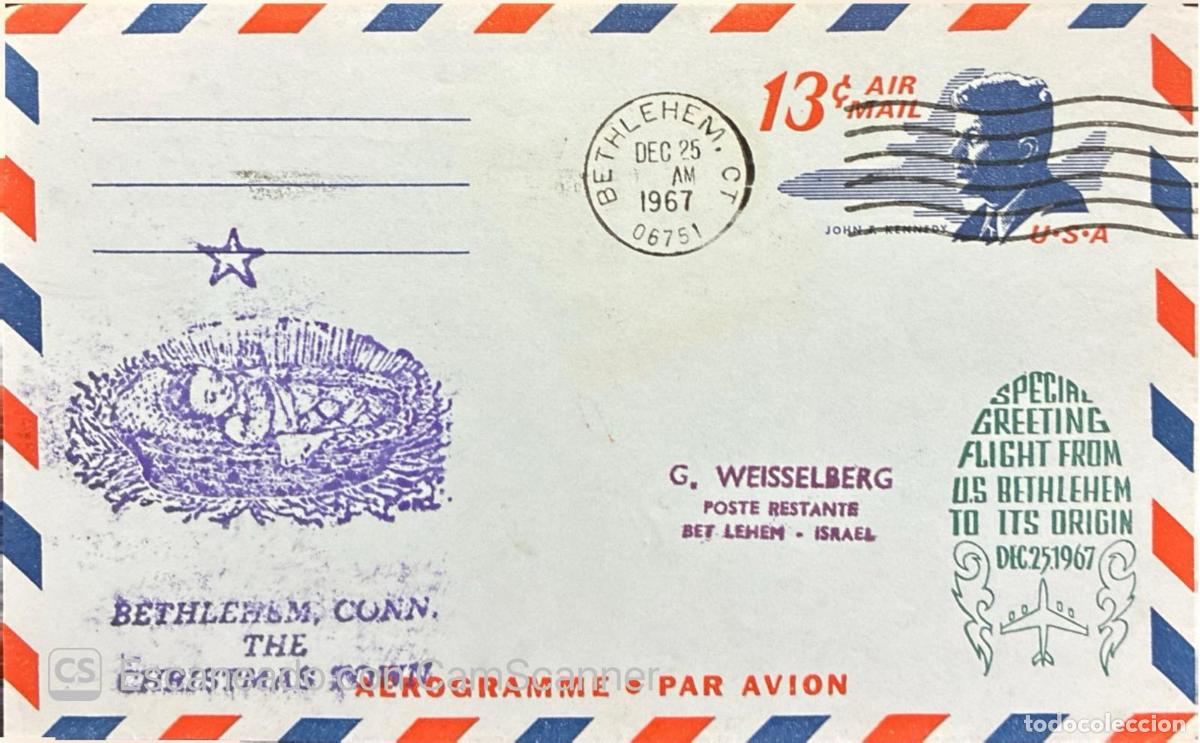 13¢ AIR MAIL
BETHLEHEM, CT
DEC 25
AM
1967
06751
JOHN F. KENNEDY
U·S·A
SPECIAL
GREETING
FLIGHT FROM
U.S BETHLEHEM
TO ITS ORIGIN
DEC.25.1967
G. WEISSELBERG
POSTE RESTANTE
BET LEHEM - ISRAEL
BETHLEHEM, CONN.
THE
CHRISTMAS TOWN
CS Escaneado con CamScanner
AEROGRAMME • PAR AVION
todocoleccion